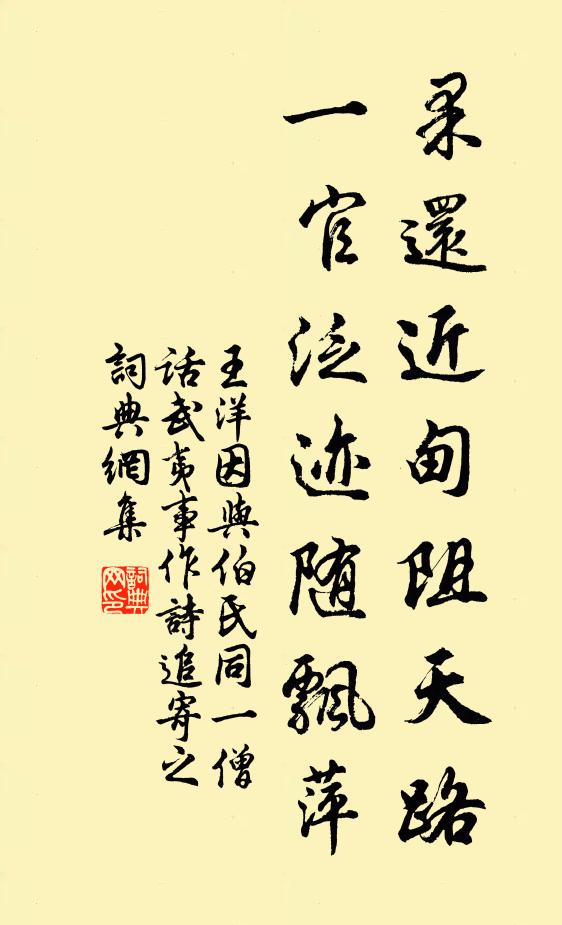 果還近甸阻天路
一官泛迹随飄萍
王洋因與伯氏同一僧
話武夷事作詩追寄之
詞典網集
詞典
网印